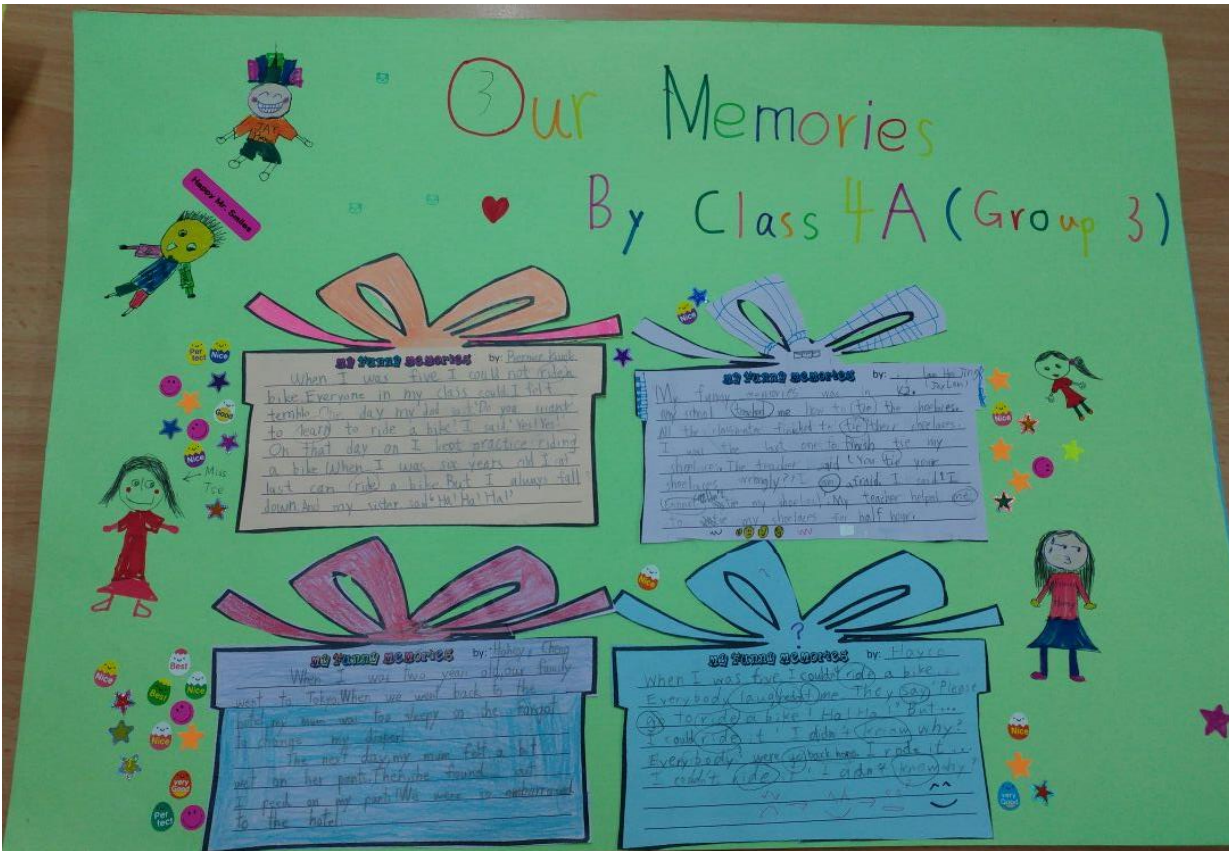 3 Our Memories
By Class 4A (Group 3)
Happy Mr. Smiles
Miss
Tse
My Funny Memories by:
When I was five I could not ride a
bike. Everyone in my class could. I felt
terrible. One day my dad said "Do you want
to learn to ride a bike? I said "Yes! Yes!"
On that day on I kept practice riding
a bike. When I was six years old I at
last can ride a bike. But I always fall
down. And my sister said "Ha! Ha! Ha!"
My Funny Memories by:
(Jay Lam)
My funny memories was in K2.
my school teached me how to tie the shoelaces.
All the classmates finished to tie their shoelaces.
I was the last one to finish tie my
shoelaces. The teacher said "You tie your
shoelaces wrongly?! I am afraid. I said "I
cannot my shoelaces". My teacher helped me
to my shoelaces for half hour.
My Funny Memories by: Cheng
When I was two year old, our family
went to Tokyo. When we went back to the
hotel, my mum was too sleepy so she forgot
to change my diaper!
The next day, my mum felt a bit
wet on her pants. Then, she found out
I peed on my pants! We were so embarrassed
to the hotel.
My Funny Memories by: Hayco
?
When I was five, I couldn't ride a bike...
Everybody laughed at me. They say "Please
go to ride a bike! Ha! Ha!" But...
I could ride it! I didn't know why?
Everybody were go back home. I rode it...
I couldn't ride it! I didn't know why?
Perfect
Nice
Good
Nice
Nice
Nice
Nice
Best
Nice
Best
Nice
Very Good
Perfect
Nice
Very Good